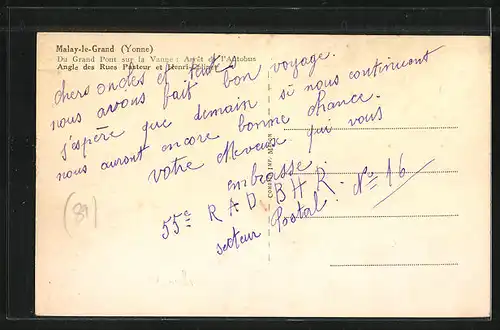 Malay-le-Grand (Yonne)
Du Grand Pont sur la Vanne : Arrêt de l'Autobus
Angle des Rues Pasteur et Henri
chers oncles et tante
nous avons fait bon voyage.
j'espère que demain si nous continuont
nous auront encore bonne chance.
votre Neveux qui vous
embrasse.
55e R A D B H R.
secteur Postal. No = 16
(89)